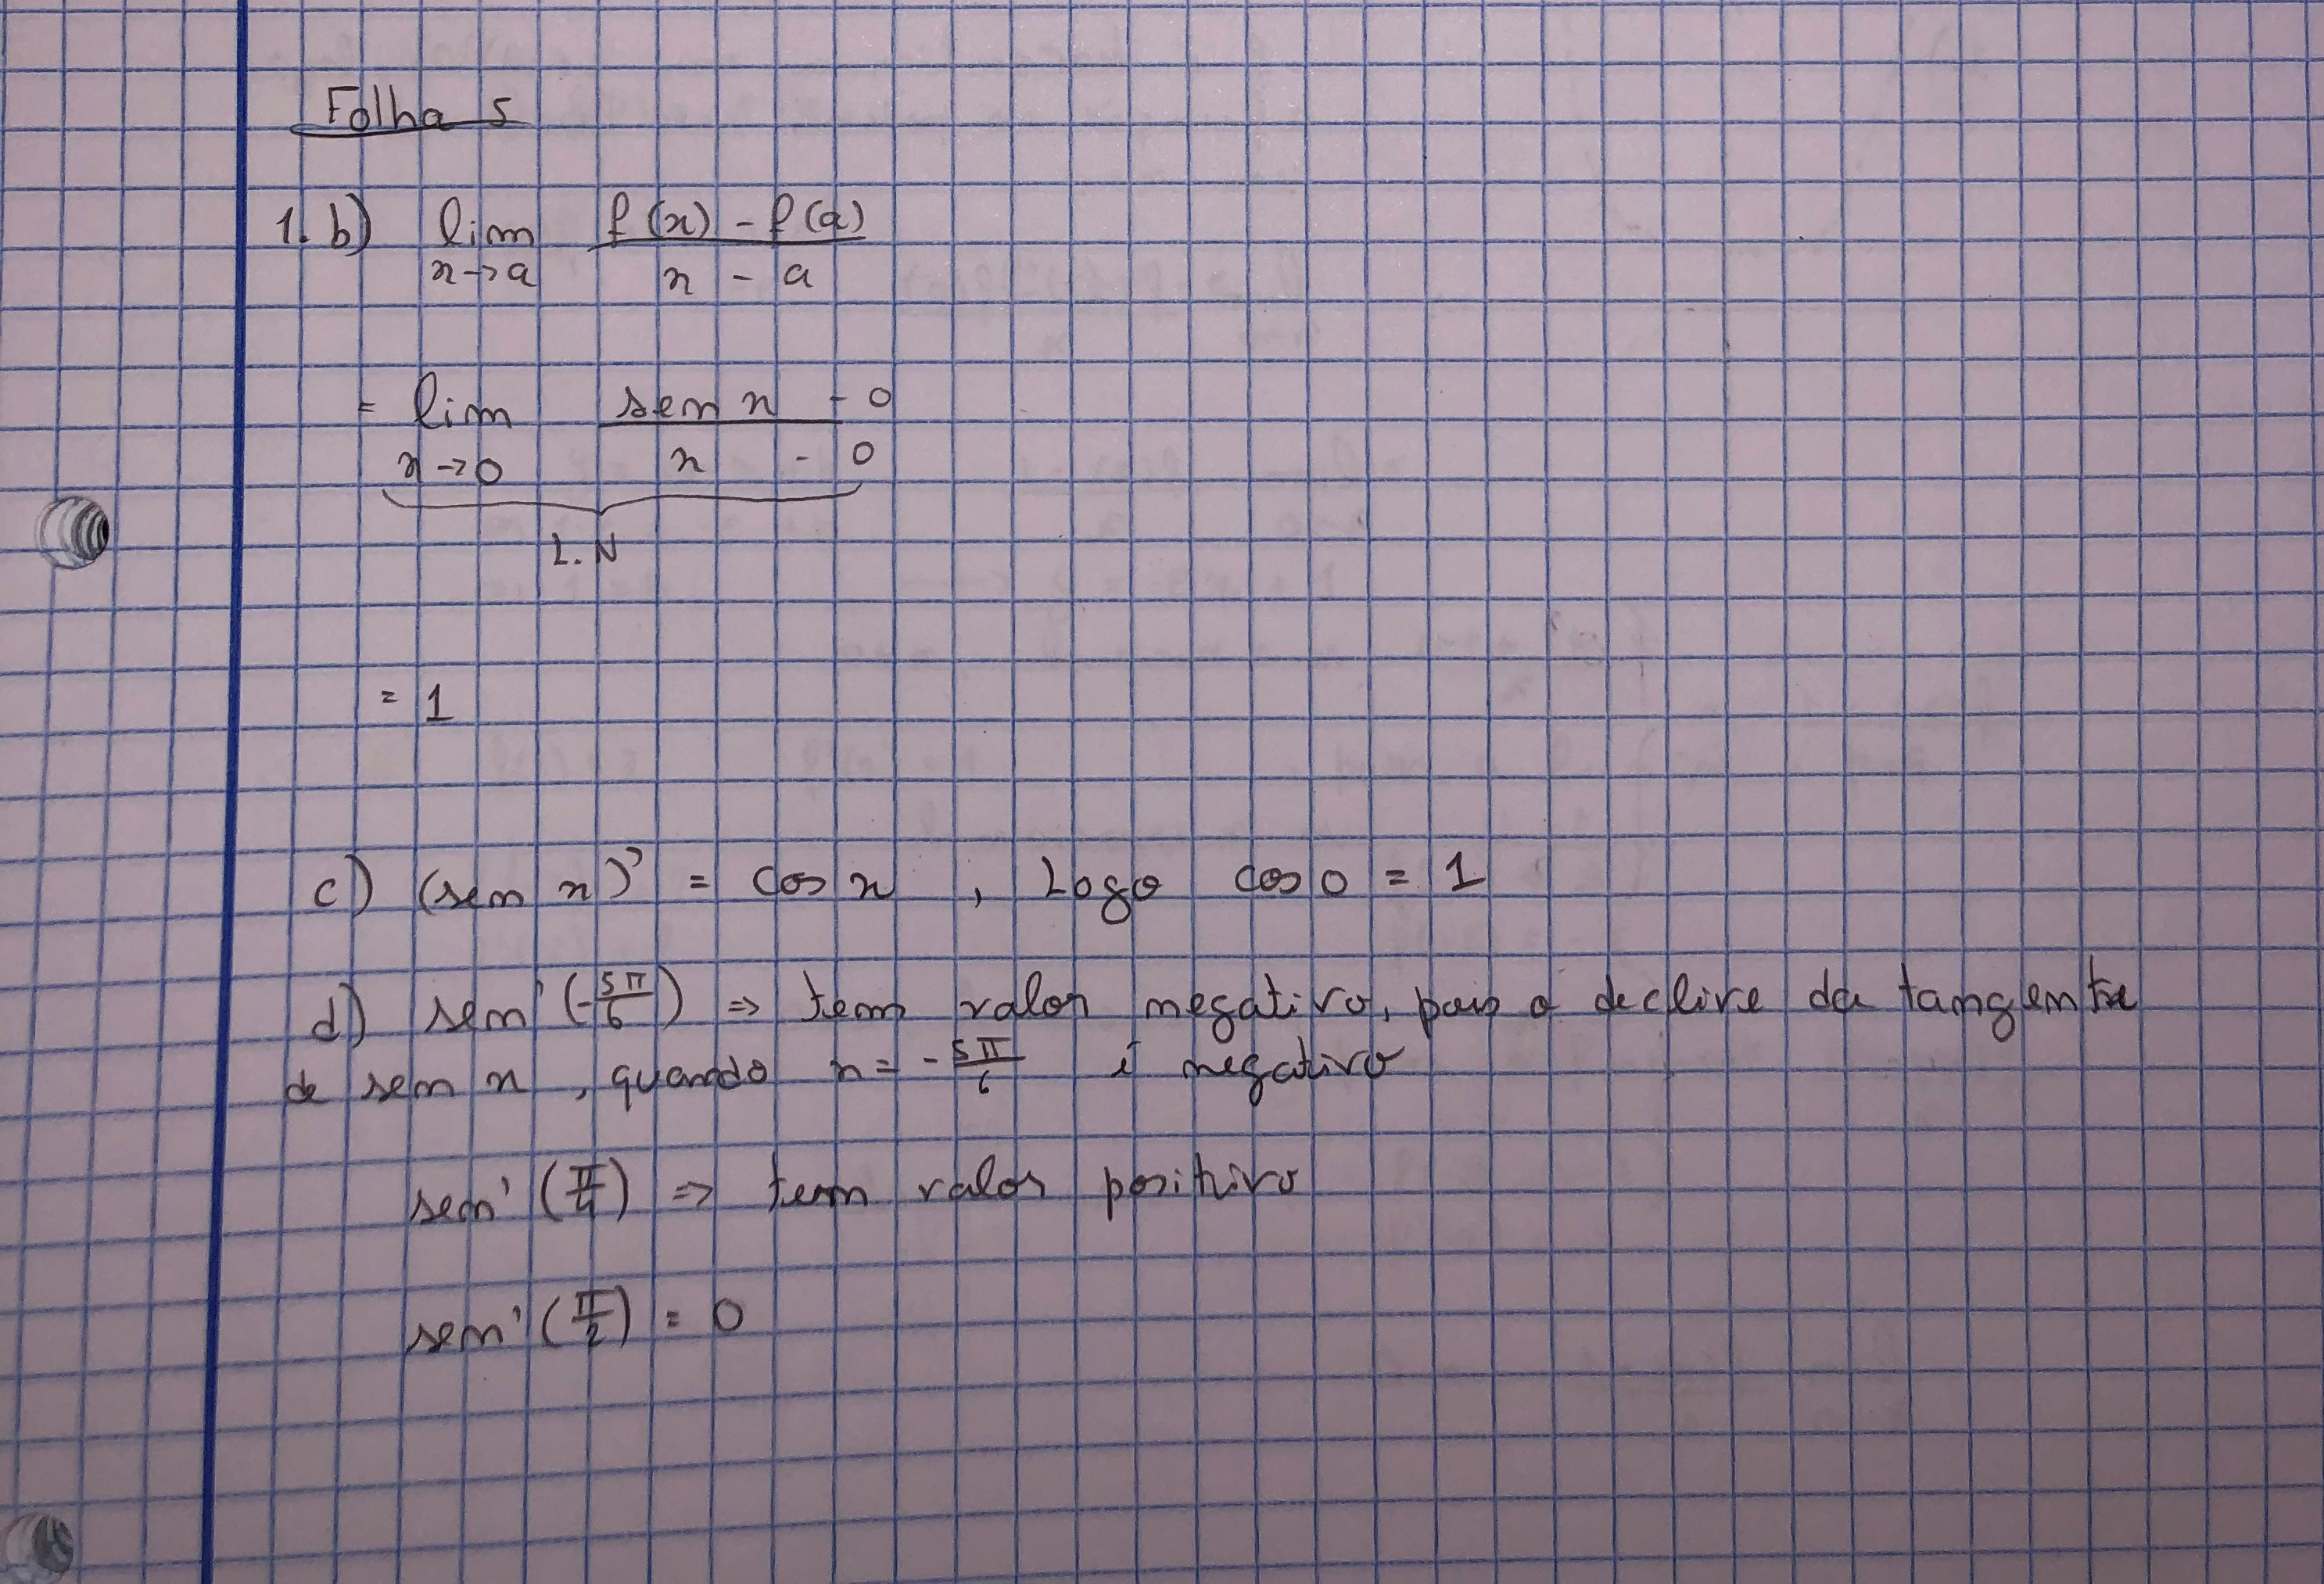 Folha 5
1. b) lim f(x) - f(a)
x→a x - a
= lim sen x - 0
x→0 x - 0
L.N
= 1
c) (sen x)' = cos x , Logo cos 0 = 1
d) sen' (-5π/6) => tem valor negativo, pois o declive da tangente
de sen x , quando x = -5π/6 é negativo
sen' (π/4) => tem valor positivo
sen' (π/2) = 0